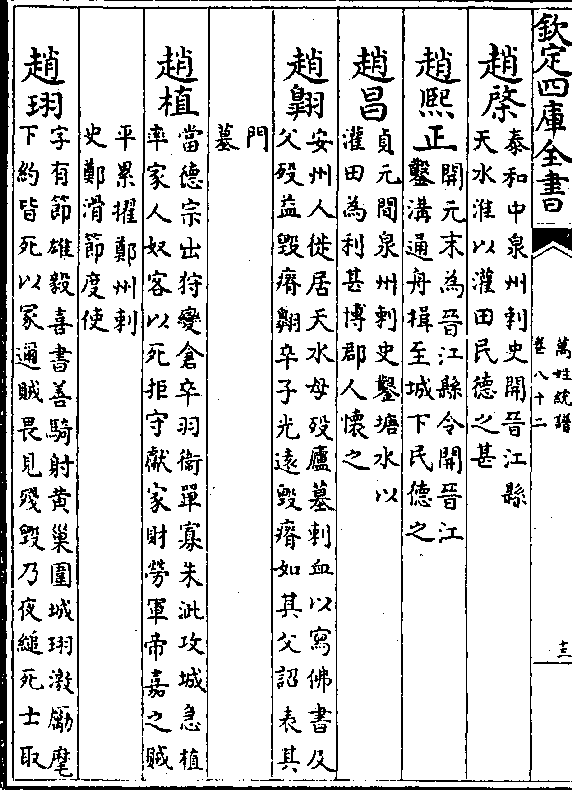 欽定四庫全書
萬姓統譜
卷八十二
十三
趙棨
泰和中泉州刺史開晉江縣
天水淮以灌田民德之甚
趙熙正
開元末為晉江縣令開晉江
鑿溝通舟楫至城下民德之
趙昌
貞元間泉州刺史鑿塘水以
灌田為利甚博郡人懷之
趙翺
安州人徙居天水母歿廬墓刺血以寫佛書及
父歿益毀瘠翺卒子光遠毀瘠如其父詔表其
門
墓
趙植
當德宗出狩變倉卒羽衛單寡朱泚攻城急植
率家人奴客以死拒守獻家財勞軍帝嘉之賊
平累擢鄭州刺
史鄭滑節度使
趙珝
字有節雄毅喜書善騎射黄巢圍城珝激勵麾
下約皆死以冢邇賊畏見殘毀乃夜縋死士取